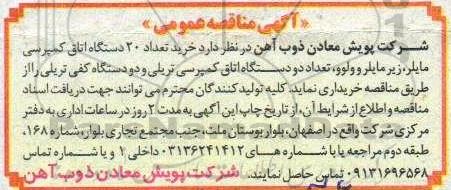 «آگهی مناقصه عمومی»
شرکت پویش معادن ذوب آهن در نظر دارد خرید تعداد ۲۰ دستگاه اتاق کمپرسی
مایلر، زیر مایلر و ولوو، تعداد دو دستگاه اتاق کمپرسی تریلی و دو دستگاه کفی تریلی را از
طریق مناقصه خریداری نماید. کلیه تولید کنندگان محترم می توانند جهت دریافت اسناد
مناقصه و اطلاع از شرایط آن، از تاریخ چاپ این آگهی به مدت ۲ روز در ساعات اداری به دفتر
مرکزی شرکت واقع در اصفهان، بلوار بوستان ملت، جنب مجتمع تجاری بلوار، شماره ۱۶۸،
طبقه دوم مراجعه یا با شماره های ۰۳۱۳۶۲۴۱۴۱۲ داخلی ۱ و یا شماره تماس
۰۹۱۳۱۶۹۶۵۶۸ تماس حاصل نمایند. شرکت پویش معادن ذوب آهن